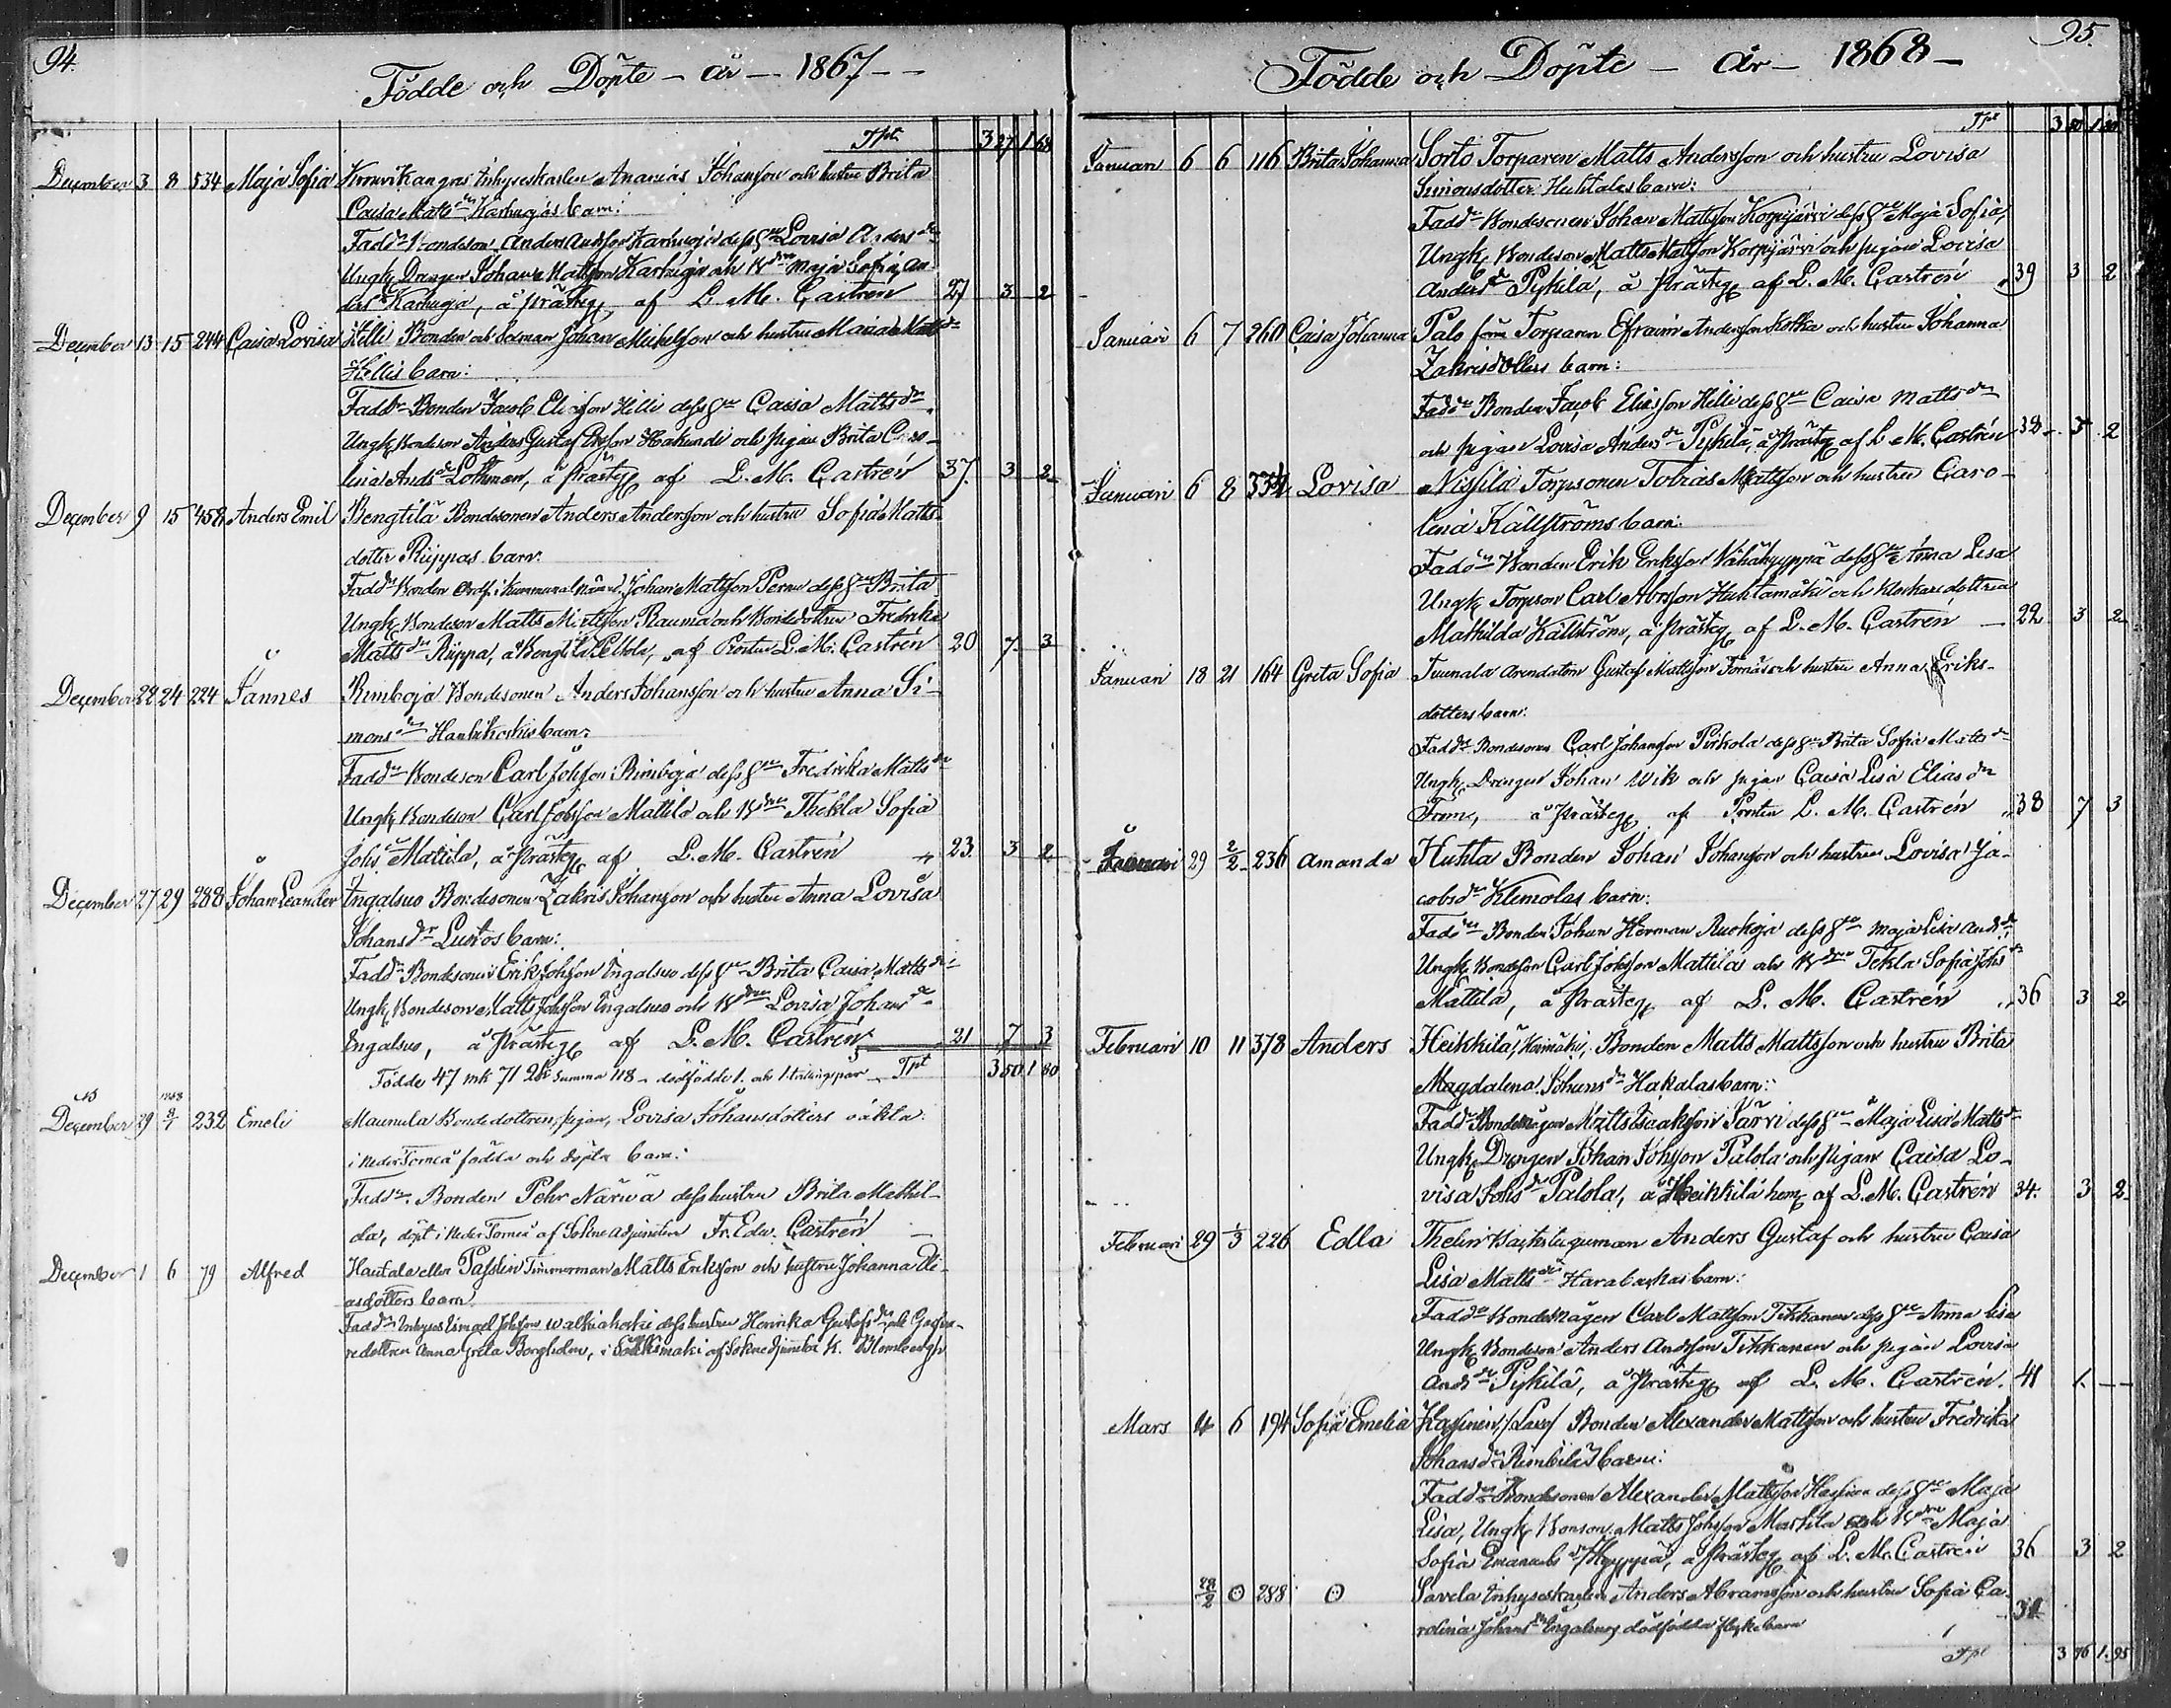 94.
Födde och Döpte – år – 1867 – –
Tpt 3 27 1 68
December 3 8 534 Maja Sofia Inhyseskarlen Ananias Johansson och hustru Brita
Caisa Matts dr Karhujas barn:
Fadd. Bondeson Anders Andsson Karhuoja dess hu Lovisa Anders dr
Ungk. Drengen Johan Mattsson Karhuoja och Maja Sofia An-
ders dr Karhuoja, å Prästeg. af L. M. Castrén 27 3 2
December 13 15 244 Caisa Lovisa Helli Bonden och Johan Mickelsson och hustru Maria Matts dr
Hellis barn:
Fadd. Bonden Jacob Eliasson Helli dess hu Caisa Matts dr
Ungk. Bondeson Anders Gustaf Hakunde och pigan Brita Caro-
lina Ands dr Lothman, å Prästeg af L. M. Castrén 37. 3 2
December 9 15 458 Anders Emil Bengtilä Bondesonen Anders Andersson och hustru Sofia Matts-
dotter Ruppas barn:
Fadd. Bonden Ordf. i Kommunal Johan Mattsson Pernu dess hu Brita
Ungk. Bondeson Matts Mattsson Rauma och Bondedottren Fredrika
Matts dr Ruppa, å Bengtilä af Prosten L. M. Castrén 20 7 3
December 22 24 224 Jannes Rimboja Bondesonen Anders Johansson och hustru Anna Si-
mons dr Hanhikoskis barn:
Fadd. Bondeson Carl Johsson Rimboja dess hu Fredrika Matts dr
Ungk. Bondeson Carl Johsson Mattila och Thekla Sofia
Johs dr Mattila, å Prästeg af L. M. Castrén 23. 3 2
December 27 29 288 Johan Leander Ingalsuo Bondesonen Zakris Johansson och hustru Anna Lovisa
Johans dr Luotos barn:
Fadd. Bondesonen Erik Johsson Ingalsuo dess hu Brita Caisa Matts dr
Ungk. Bondeson Matts Johsson Ingalsuo och Lovisa Johans dr
Ingalsuo, å Prästeg af L. M. Castrén 21 7 3
Födde 47 mk 71 qk Summa 118 – dödfödde 1. och 1 tvillingpar Tpt 3 50 1 80
December 29 1868 232 Emeli Maunula Bondedottren, pigan, Lovisa Johansdotters oäkta
i Neder Torneå födda och döpta barn:
Fadd. Bonden Pehr Närwä dess hustru Brita Mathil-
da, döpt i Neder Torneå af Sockneadjuncten Fr. Edw. Castrén
December 1 6 79 Alfred Hautala eller Timmerman Matts Eriksson och hustru Johanna Eli-
asdotters barn
Fadd. Inhyses Ismael Johsson dess hustru Henrika Gustafs dr
dottren Anna Greta Borgholm, i af Sockneadjuncten K. Blombergh
95.
Födde och Döpte – år – 1868 –
Tpt 3 50 1 80
Januari 6 6 116 Brita Johanna Sorto Torparen Matts Andersson och hustru Lovisa
Simonsdotter Huhtalas barn:
Fadd. Bondesonen Johan Mattsson Korpijärvi dess hu Maja Sofia,
Ungk. Bondeson Matts Mattsson Korpijärvi och pigan Lovisa
Anders dr Pykilä, å Prästeg af L. M. Castrén 39 3 2
Januari 6 7 260 Caisa Johanna Palo Torparen Efraim Andersson Kotka och hustru Johanna
Zakrisdotters barn:
Fadd. Bonden Jacob Eliasson Helli dess hu Caisa Matts dr
och pigan Lovisa Anders dr Pykilä, å Prästeg af L. M. Castrén 38 3 2
Januari 6 8 Lovisa Nissilä Torpsonen Tobias Mattsson och hustru Caro-
lina Källströms barn:
Fadd. Bonden Erik Eriksson dess hu Anna Lisa
Ungk. Torpson Carl Abrsson Huhtamäki och klockaredottren
Mathilda Källström, å Prästeg af L. M. Castrén 22 3 2
Januari 18 21 164 Greta Sofia Juunala Arendatorn Gustaf Mattsson och hustru Anna Eriks-
dotters barn:
Fadd. Bondesonen Carl Johansson Pirkola dess hu Brita Sofia Matts dr
Ungk. Drengen Johan Wik och pigan Caisa Lisa Elias dr
å Prästeg af Prosten L. M. Castrén 38 7 3
Januari 29 2/2 236 Amanda Huhta Bonden Johan Johansson och hustru Lovisa Ja-
cobs dr Klemolas barn:
Fadd. Bonden Johan Herman Ruokoja dess hu Maja Lisa Ands dr
Ungk. Bondeson Carl Johsson Mattila och Tekla Sofia Johs dr
Mattila, å Prästeg af L. M. Castrén 36 3 2
Februari 10 11 378 Anders Heikkilä, Bonden Matts Mattsson och hustru Brita
Magdalena Johans dr Hakalas barn:
Fadd. Bondemågen Matts Isaaksson Järvi dess hu Maja Lisa Matts dr
Ungk. Drengen Johan Johsson Palola och Pigan Caisa Lo-
visa Johs dr Palola, å Heikkilä hem. af L. M. Castrén 34. 3 2
Februari 29 1/3 226 Edla Thelin Anders Gustaf och hustru Caisa
Lisa Matts dr Harabackas barn:
Fadd. Bondemågen Carl Mattsson Tikkanen dess hu Anna Lisa
Ungk. Bondeson Anders Andsson Tikkanen och pigan Lovisa
Ands dr Pykilä, å Prästeg af L. M. Castrén. 41 1. – –
Mars 4 6 194 Sofia Emelia Bonden Alexander Mattsson och hustru Fredrika
Johans dr Rimbiläs barn:
Fadd. Bondesonen Alexander Mattsson dess hu Maja
Lisa, Ungk. Bonson Matts Johsson Markila och Maja
Sofia Emanuels dr Hyyppä, å Prästeg af L. M. Castrén 36 3 2
28/2 0 288 0 Savela Inhyseskarlen Anders Abramsson och hustru Sofia Ca-
rolina Johans dr Ingalsuos dödfödda flickebarn
Tpt 3 76 1. 95